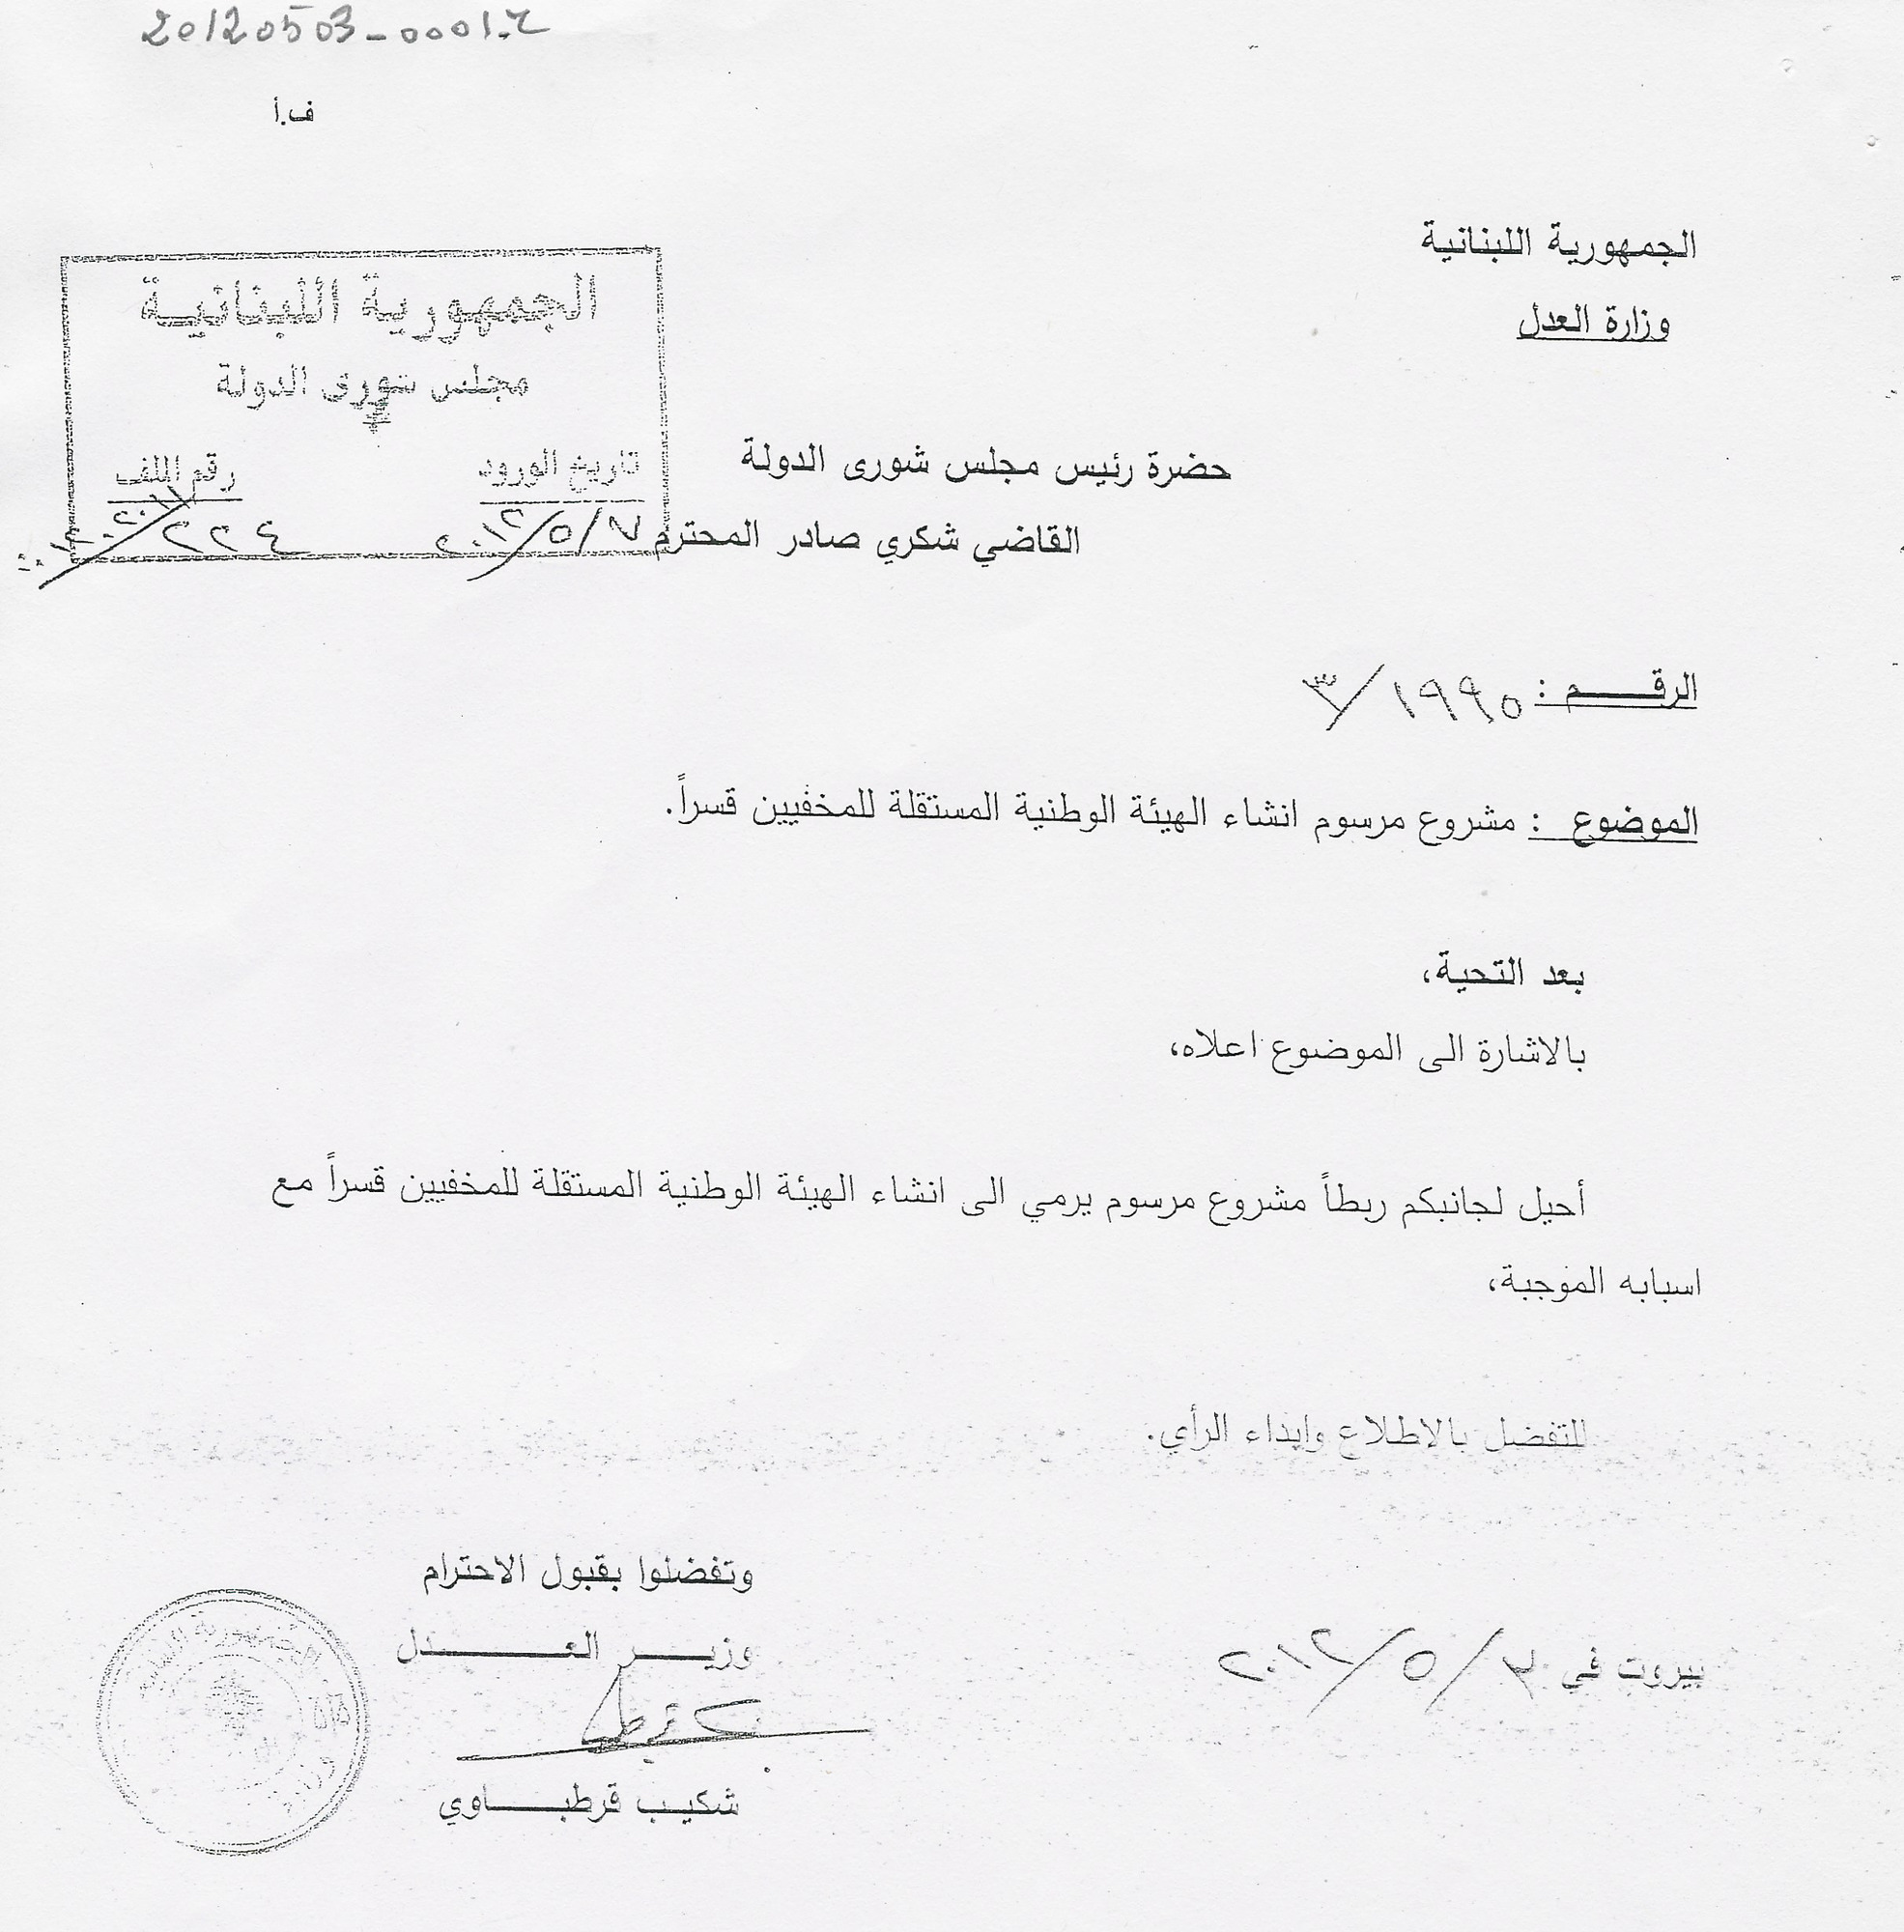 20120503-0001-2
ف.أ
الجمهورية اللبنانية
وزارة العدل
الجمهورية اللبنانية
مجلس شورى الدولة
تاريخ الورود رقم الملف
٢٠١٢/٥/٧ ٢٢٤
حضرة رئيس مجلس شورى الدولة
القاضي شكري صادر المحترم
الرقـــــم : ٣/١٩٩٥
الموضوع : مشروع مرسوم انشاء الهيئة الوطنية المستقلة للمخفيين قسراً.
بعد التحية،
بالاشارة الى الموضوع اعلاه،
أحيل لجانبكم ربطاً مشروع مرسوم يرمي الى انشاء الهيئة الوطنية المستقلة للمخفيين قسراً مع
اسبابه الموجبة،
للتفضل بالاطلاع وابداء الرأي.
وتفضلوا بقبول الاحترام
وزيـــــر العـــــــــدل
بيروت في ٣/٥/٢٠١٢
شكيـب قرطبـــــاوي
الجمهورية اللبنانية
وزارة